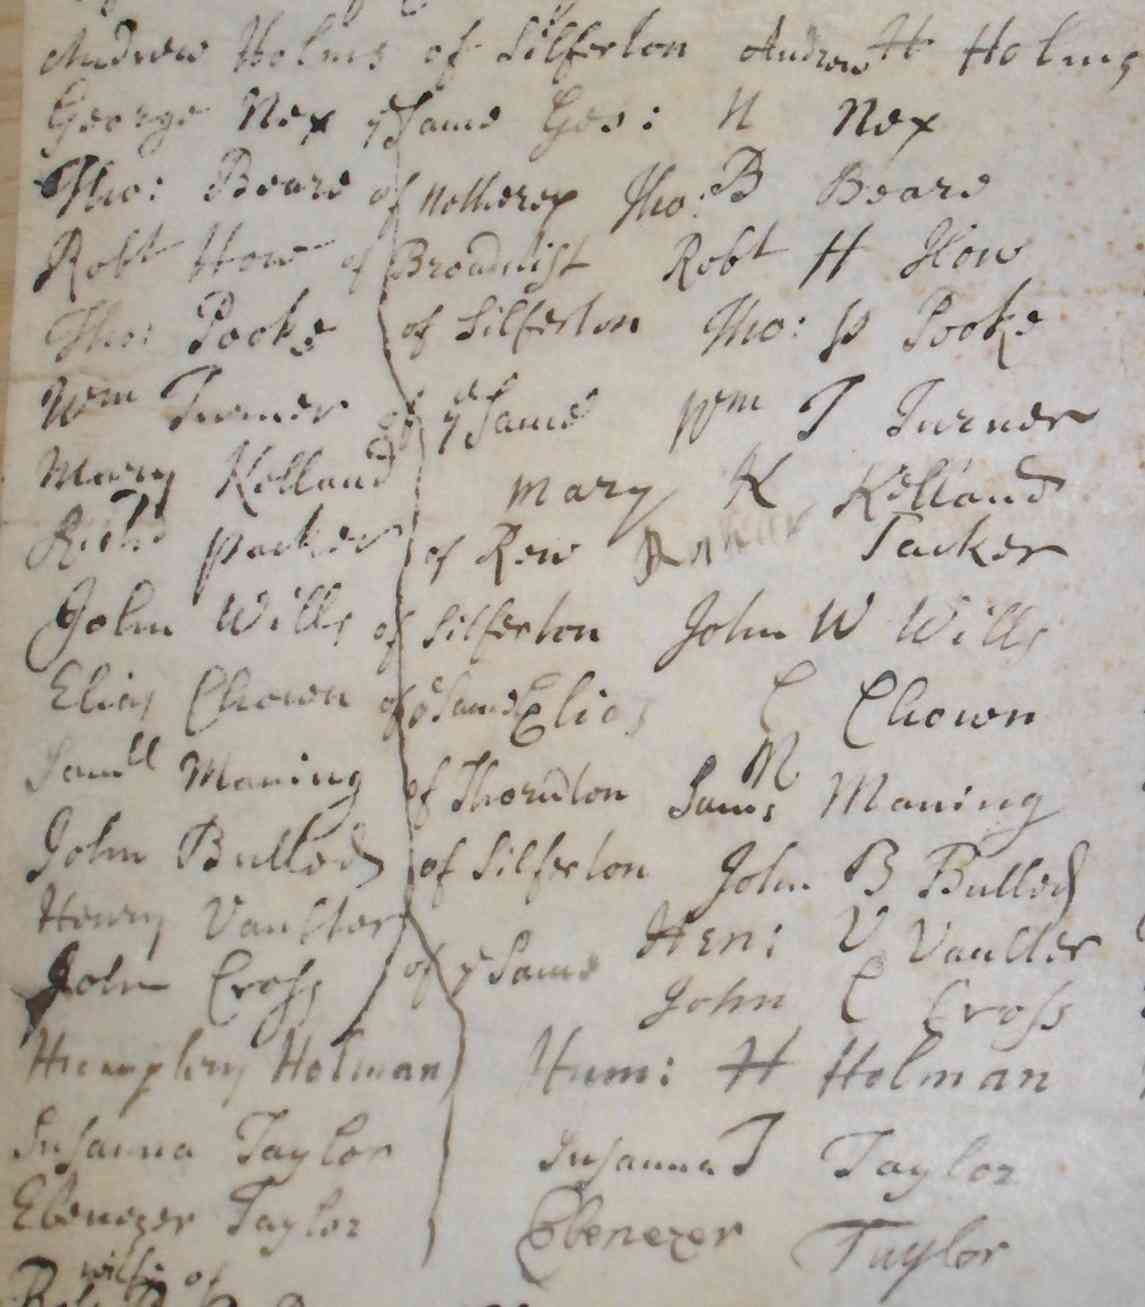 Andrew Holms of Silferton Andrew H Holms
George Nex of ye same Geo: N Nex
Tho: Beare of Netherex Tho: B Beare
Robt How of Broadclist Robt H How
Tho: Pooke of Silferton Tho: P Pooke
Wm Turner of ye same Wm T Turner
Mary Kelland Mary K Kelland
Richd of Rew Tacker
John Wills of Silferton John W Wills
Elias Chown of ye same Elias C Chown
Samll Maning of Thorndton Sam: M Maning
John Bulled of Silferton John B Bulled
Henry Vaulter Hen: V Vaulter
John Cross of ye same John C Cross
Humphry Holman Hum: H Holman
Susanna Taylor Susanna T Taylor
Ebenezer Taylor Ebenezer Taylor
wife of